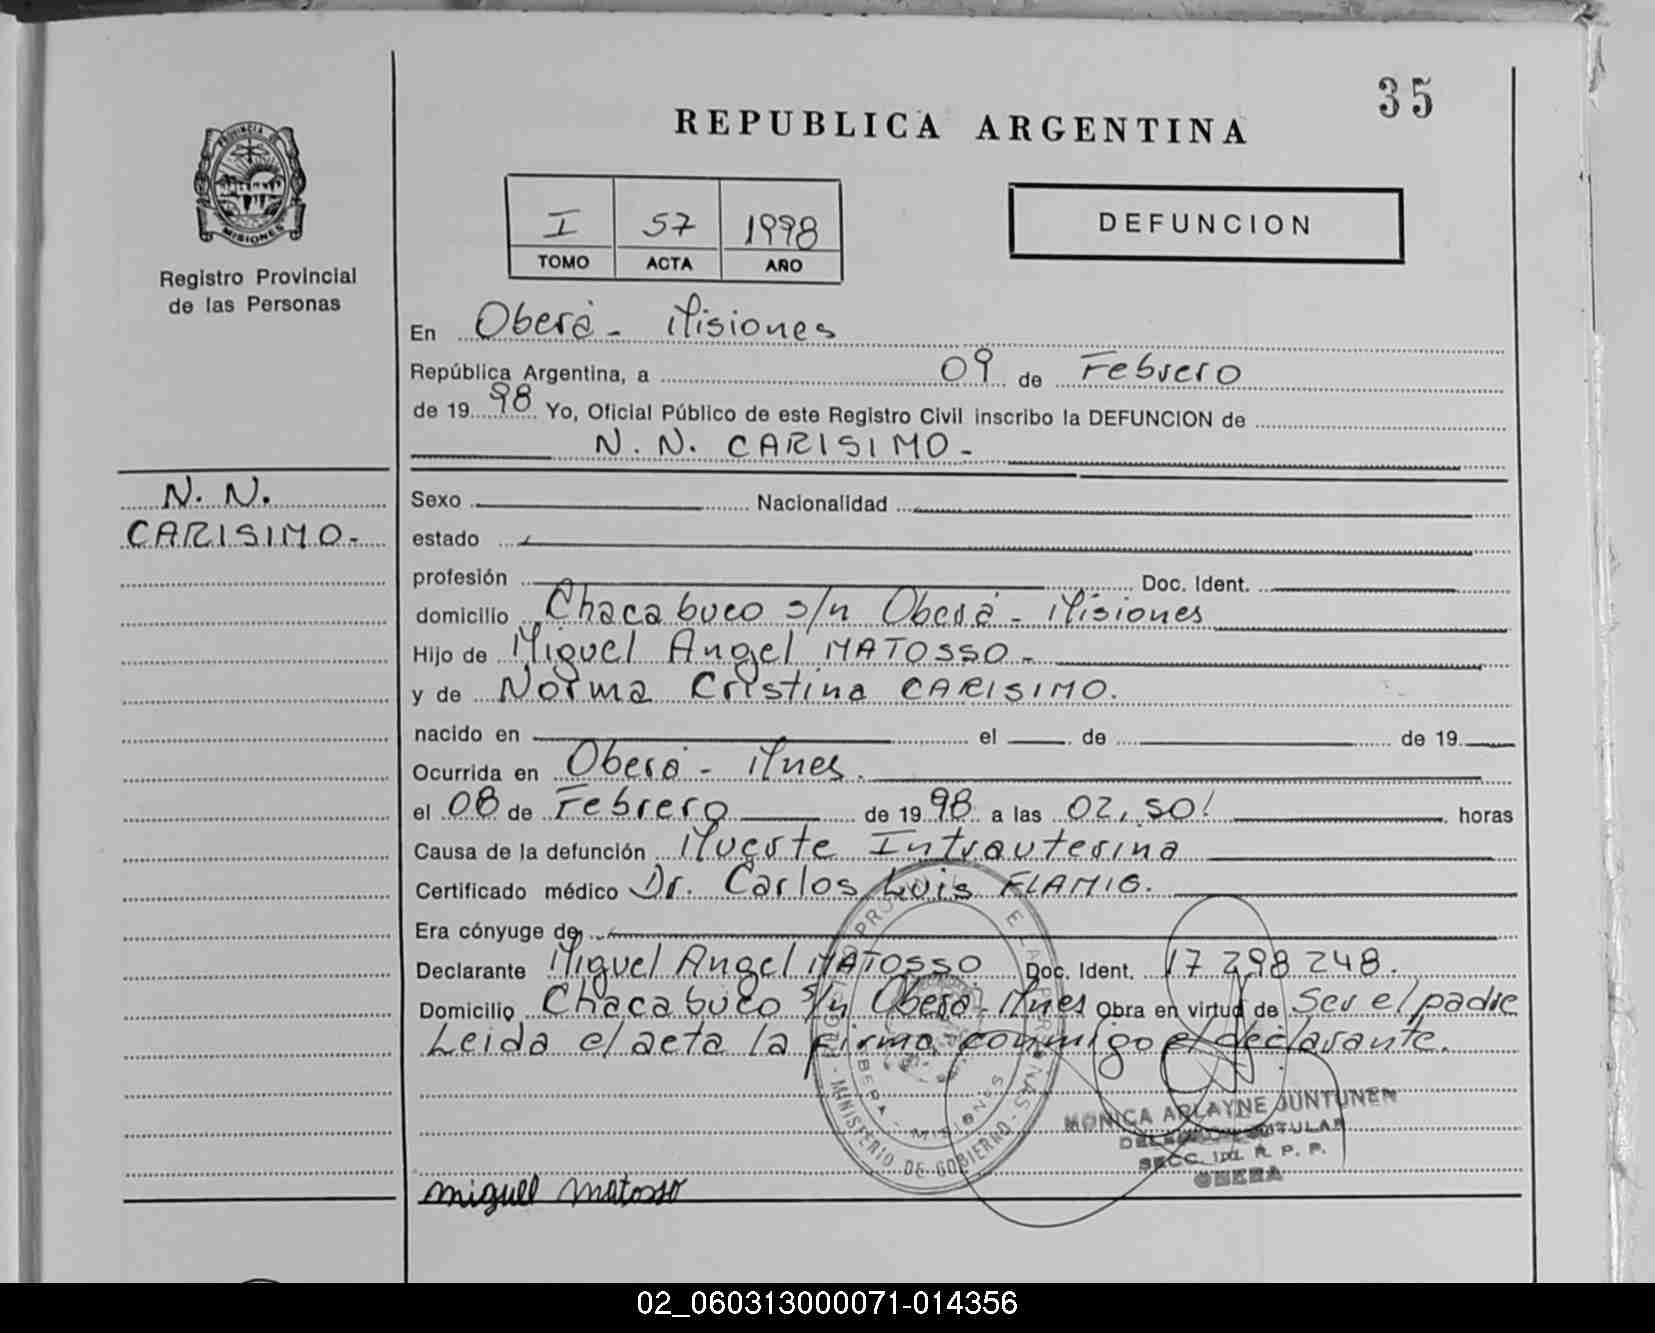 35
REPUBLICA ARGENTINA
PROVINCIA DE
MISIONES
Registro Provincial
de las Personas
I 57 1998
TOMO ACTA AÑO
DEFUNCION
En Oberá - Misiones
República Argentina, a 09 de Febrero
de 19 98 Yo, Oficial Público de este Registro Civil inscribo la DEFUNCION de
N. N. CARISIMO -
N. N.
CARISIMO -
Sexo Nacionalidad
estado
profesión Doc. Ident.
domicilio Chacabuco s/n Oberá - Misiones
Hijo de Miguel Angel MATOSSO -
y de Norma Cristina CARISIMO.
nacido en el de de 19
Ocurrida en Oberá - Mnes.
el 08 de Febrero de 19 98 a las 02,50! horas
Causa de la defunción Muerte Intrauterina
Certificado médico Dr. Carlos Luis FLAMIG.
Era cónyuge de
Declarante Miguel Angel MATOSSO Doc. Ident. 17 298 248.
Domicilio Chacabuco s/n Oberá - Mnes Obra en virtud de Ser el padre
Leida el acta la firma conmigo el declarante.
MINISTERIO DE GOBIERNO
MONICA ARLAYNE JUNTUNEN
SECC. R. P. P.
OBERA
miguel matosso
02_060313000071-014356